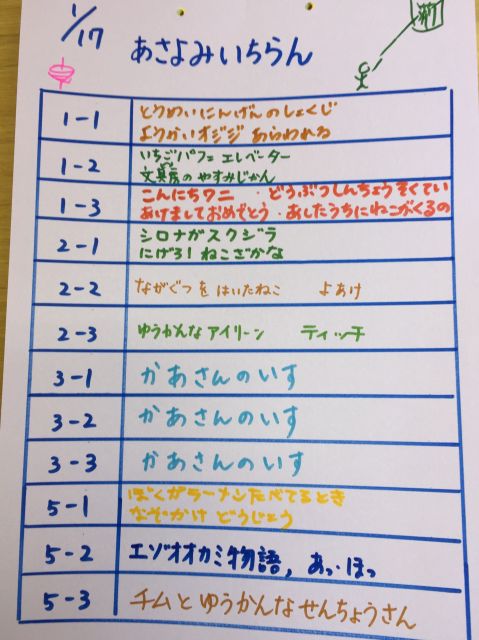 1/17
あさよみいちらん
1-1
とうめいにんげんのしょくじ
ようかいオジジ あらわれる
1-2
いちごパフェ エレベーター
文具房の やすみじかん
1-3
こんにちワニ ・どうぶつしんちょうそくてい
あけましておめでとう ・あしたうちにねこがくるの
2-1
シロナガスクジラ
にげろ!ねこざかな
2-2
ながぐつを はいたねこ よあけ
2-3
ゆうかんな アイリーン ティッチ
3-1
かあさんのいす
3-2
かあさんのいす
3-3
かあさんのいす
5-1
ぼくがラーメンたべてるとき
なぞかけ どうじょう
5-2
エゾオオカミ物語, あっ・ほっ
5-3
チムとゆうかんなせんちょうさん